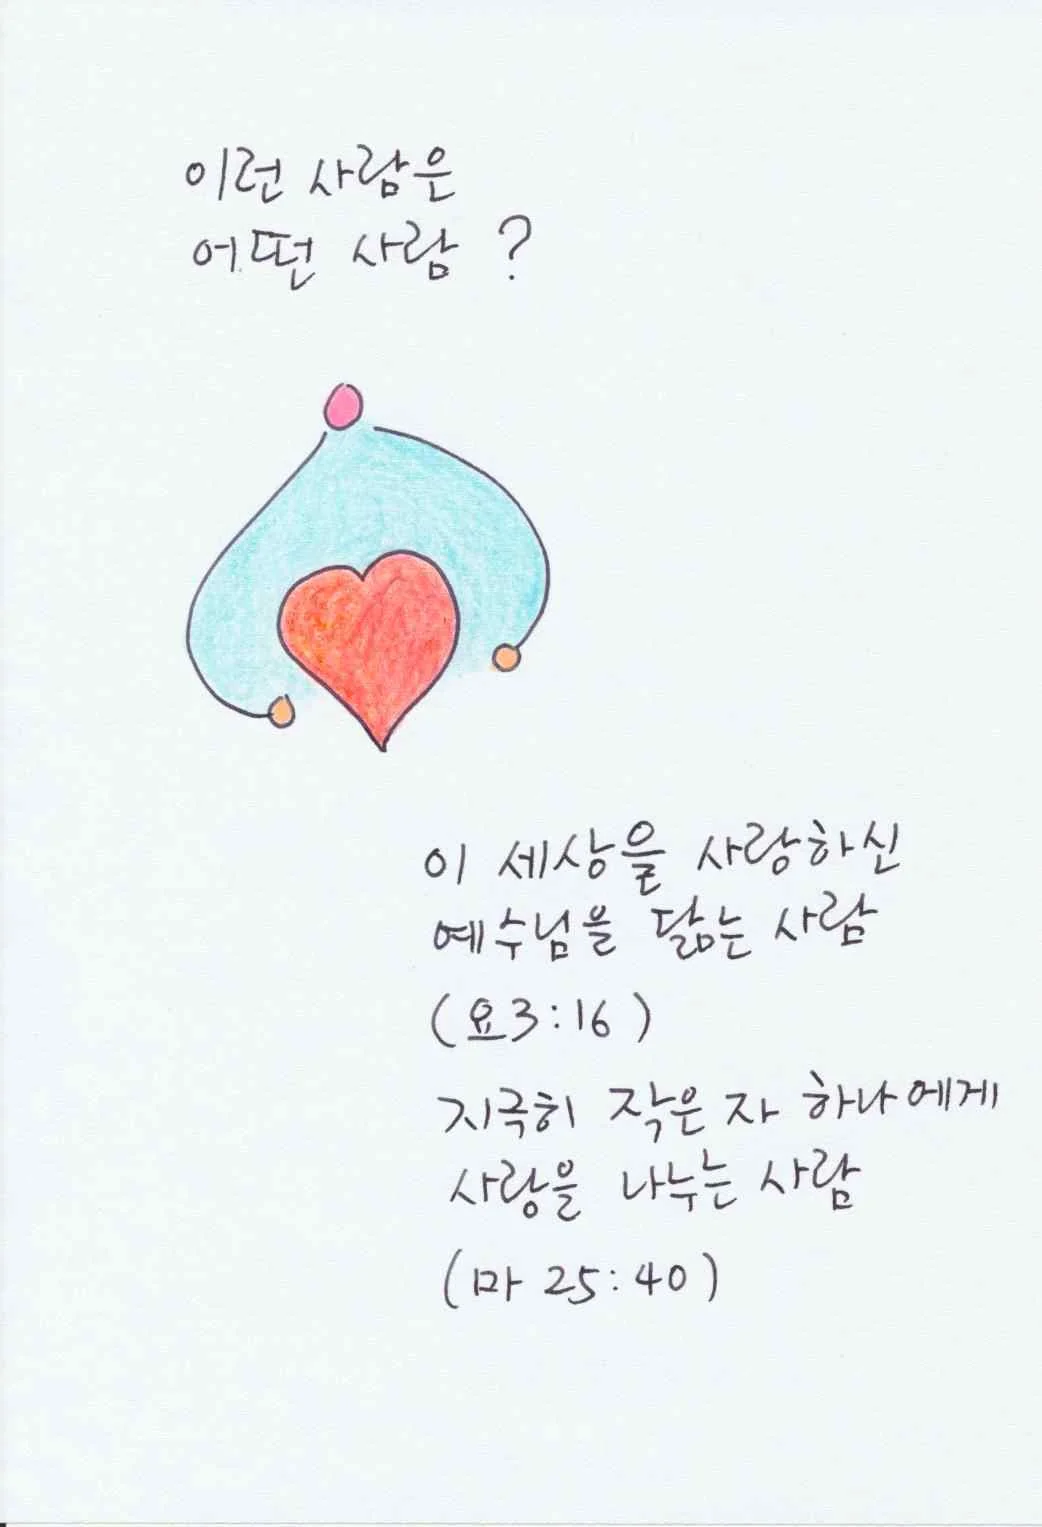 이런 사람은
어떤 사람 ?
이 세상을 사랑하신
예수님을 닮는 사람
(요3:16)
지극히 작은 자 하나에게
사랑을 나누는 사람
(마 25:40)